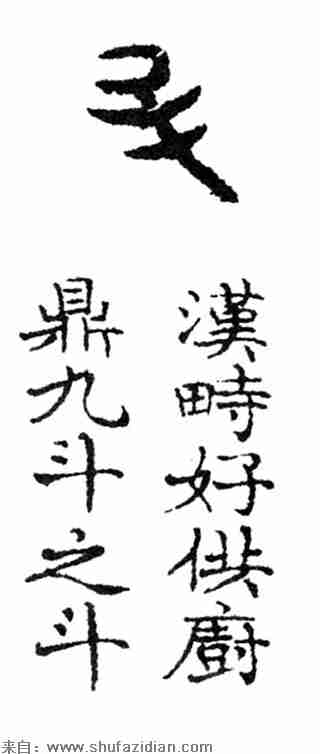 斗
漢畤好供廚
鼎九斗之斗
来自：www.shufazidian.com